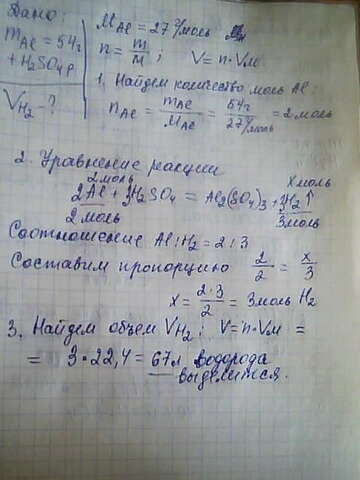 Дано:
mAl = 54г
+ H2SO4 р
VH2 - ?
MAl = 27 г/моль
n = m/M; V = n · Vм
1. Найдем количество моль Al:
nAl = mAl/MAl = 54г/27 г/моль = 2 моль
2. Уравнение реакции
2 моль X моль
2Al + 3H2SO4 = Al2(SO4)3 + 3H2↑
2 моль 3 моль
Соотношение Al : H2 = 2 : 3
Составим пропорцию 2/2 = x/3
x = 2·3/2 = 3 моль H2
3. Найдем объем VH2; V = n · Vм =
= 3 · 22,4 = 67л водорода
выделится.